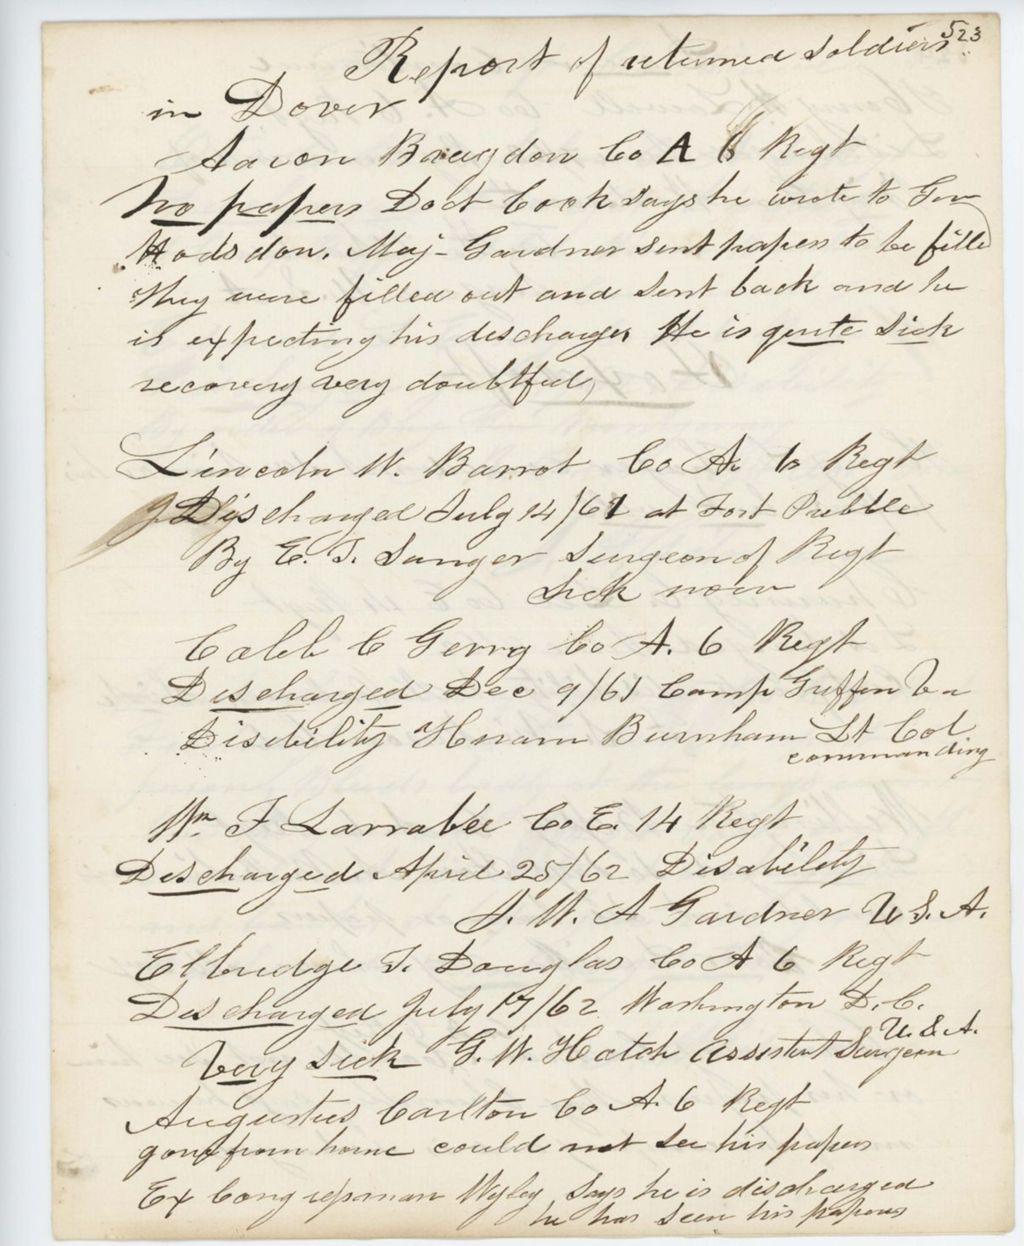 523
Report of returned Soldiers
in Dover
Aaron Bragdon Co A 6 Regt
No papers Doct Cook says he wrote to Gen
Hodsdon. Maj- Gardner sent papers to be fille
they were filled out and sent back and he
is expecting his descharge, He is quite Sick
recovery very doubtful,
Lincoln W. Barrot Co A. 6 Regt
Discharged July 14/61 at Fort Prebble
By E. F. Sanger Surgeon of Regt
Sick now
Caleb C Gerry Co A. 6 Regt
Descharged Dec 9/61 Camp Griffin Va
Disibility Hiram Burnham Lt Col
commanding
Wm F Larrabee Co E. 14 Regt
Descharged April 25/62 Disability
J. W. T Gardner U S. A.
Elbridge T. Douglas Co A 6 Regt
Descharged July 17/62 Washington D. C.
Very Sick G. W. Hatch Assistant Surgeon U. S. A.
Augustus Carlton Co A. 6 Regt
gone from home could not see his papers
Ex Congressman Wyley says he is discharged
he has seen his papers